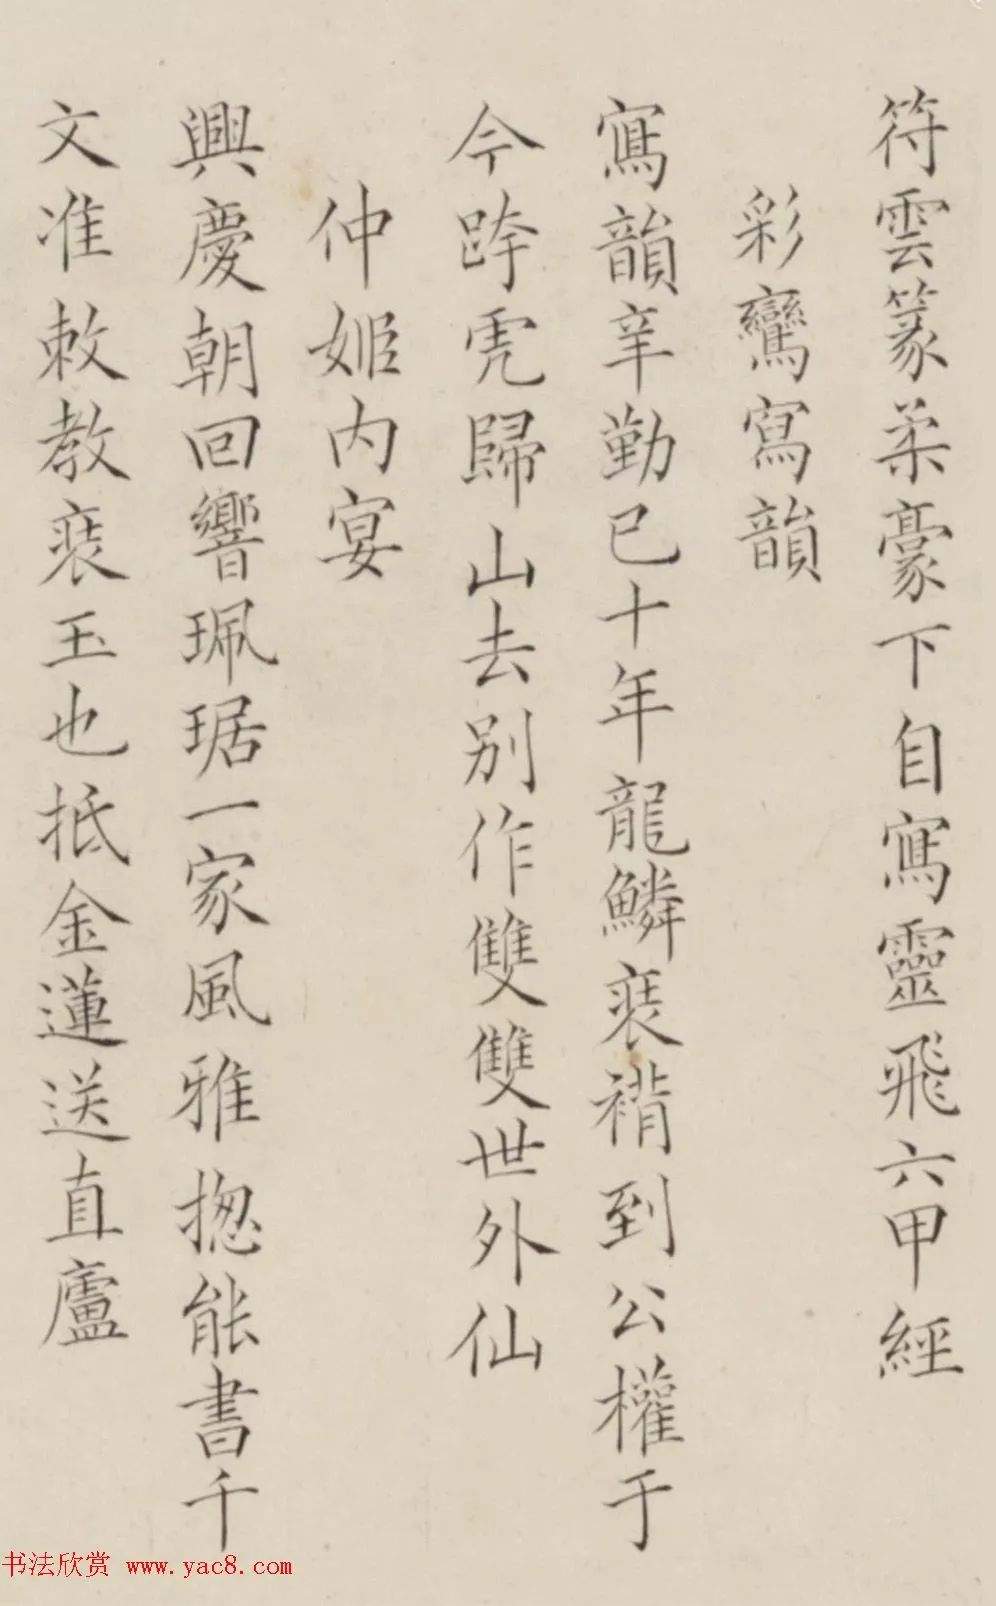 符雲篆柔豪下自寫靈飛六甲經
彩鸞寫韻
寫韻辛勤已十年龍鱗裝褙到公權于
今跨虎歸山去別作雙雙世外仙
仲姬内宴
興慶朝回響珮琚一家風雅摠能書千
文准敕教裝玉也抵金蓮送直廬
书法欣赏 www.yac8.com